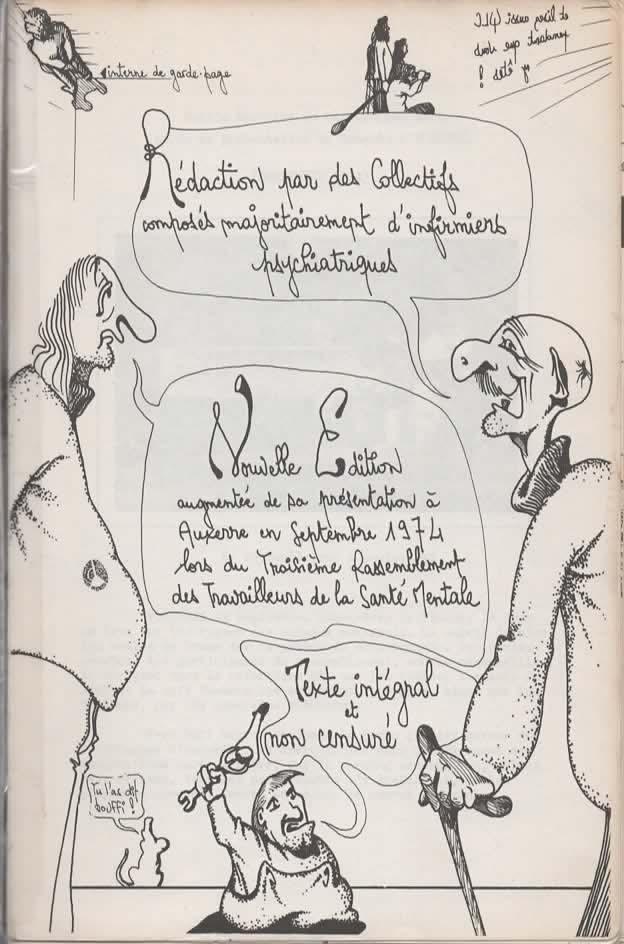 interne de garde-page
Rédaction par des Collectifs
composés majoritairement d'infirmiers
psychiatriques
Nouvelle Edition
augmentée de sa présentation à
Auxerre en Septembre 1974
lors du Troisième Rassemblement
des Travailleurs de la Santé Mentale
Texte intégral
et
non censuré
Tu l'as dit
bouffi !